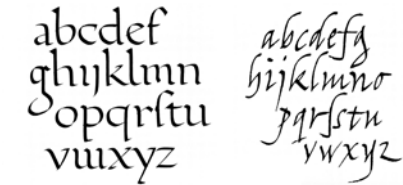 abcdef
ghijklmn
opqrſtu
vwxyz
abcdefg
hijklmno
pqrſstu
vwxyz